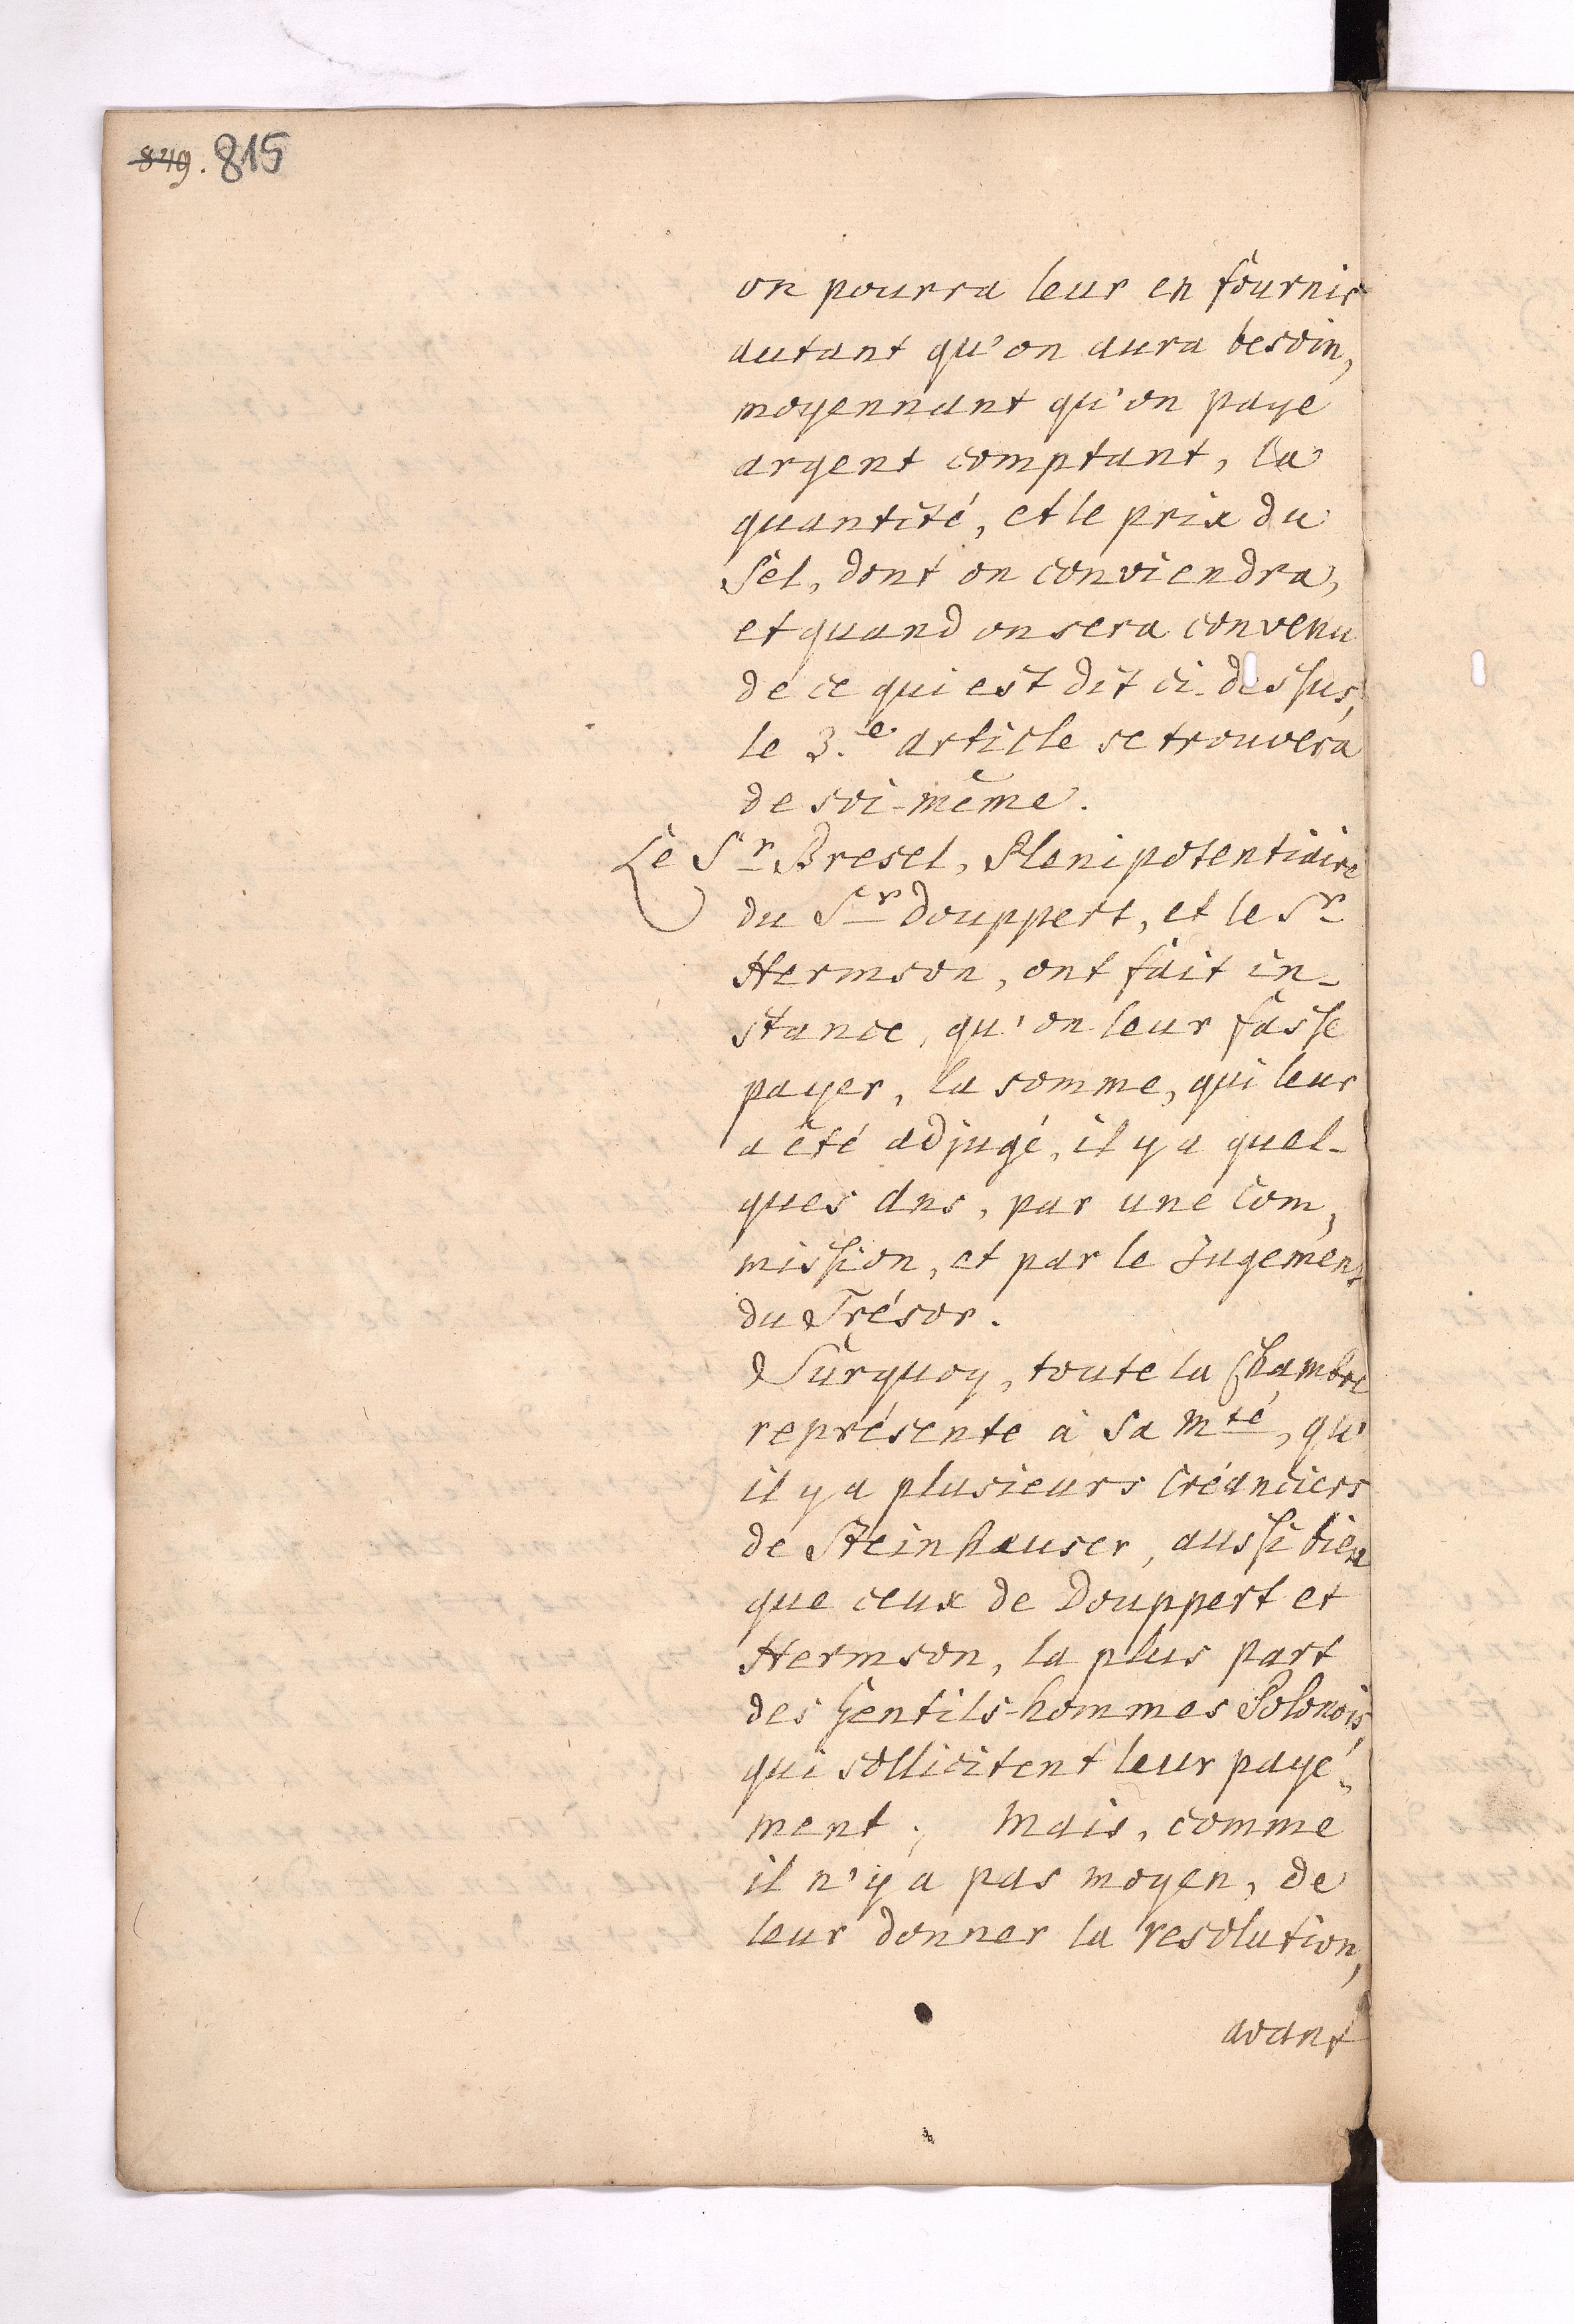 849. 815
on pourra leur en fournir
autant qu'on aura besoin,
moyennant qu'on paye
argent comptant, la
quantité, et le prix du
Sel, dont on conviendra,
et quand on sera convenu
de ce qui est dit ci-dessus,
le 3.e article se trouvera
de soi-même.
Le Sr Bresel, Plenipotentiaire
du Sr Douppert, et le Sr
Hermson, ont fait in-
stance, qu'on leur fasse
payer, la somme, qui leur
a été adjugé, il y a quel-
ques ans, par une Com,
mission, et par le Jugement
du Trésor.
Surquoy, toute la Chambre
représente à Sa Mté, qu'
il y a plusieurs Créanciers
de Steinhauser, aussi bien
que ceux de Douppert et
Hermson, la plus part
des Gentils-hommes Polonois,
qui sollicitent leur payé-
ment; Mais, comme
il n'y a pas moyen, de
leur donner la resolution,
avant